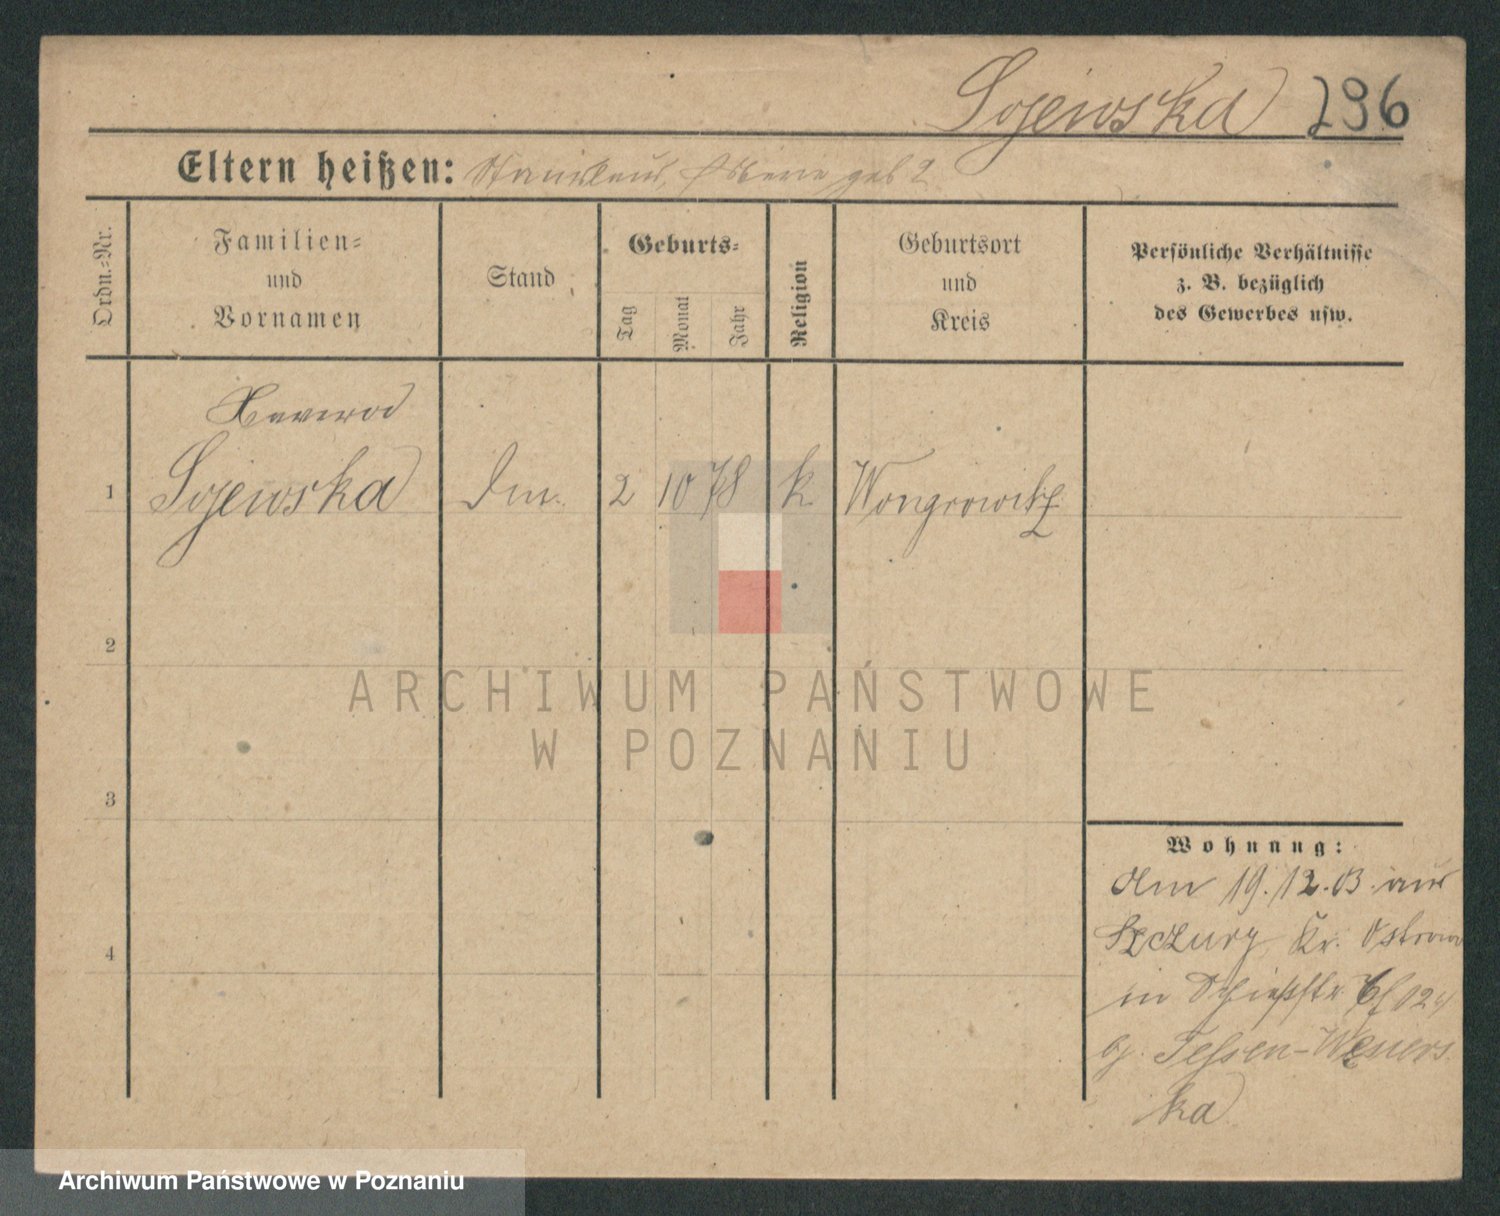 Sojewska 296
Eltern heißen: Stanislaus, geb
Ordn.-Nr.
Familien-
und
Vornamen
Stand
Geburts-
Tag
Monat
Jahr
Religion
Geburtsort
und
Kreis
Persönliche Verhältnisse
z. B. bezüglich
des Gewerbes usw.
1 Sojewska 2 10 78 k Wongrowitz
2
3
4
Wohnung:
Am 19.12.03 aus
Kr. Ostrowo
in Schießstr
ka
ARCHIWUM PAŃSTWOWE
W POZNANIU
Archiwum Państwowe w Poznaniu